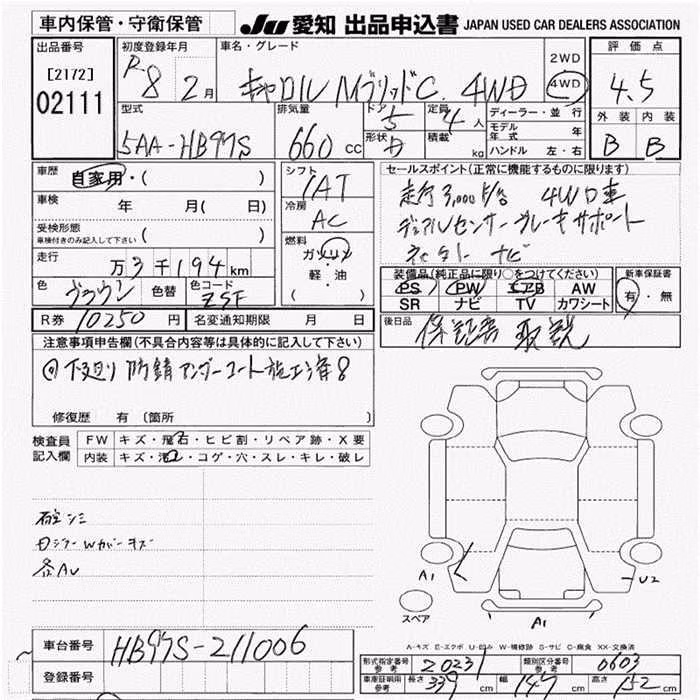 車内保管・守衛保管
JU 愛知 出品申込書 JAPAN USED CAR DEALERS ASSOCIATION
出品番号 [2172] 02111
初度登録年月 R8 2月
車名・グレード キャロル ハイブリッドC 4WD
2WD 4WD
評価点 4.5
外装 B 内装 B
型式 5AA-HB97S
排気量 660 cc
ドア 5 形状
定員 4 人 積載 kg
ディーラー・並行
モデル年式 年
ハンドル 左・右
車歴 自家用・( )
車検 年 月( 日)
受検形態 ( )
車検付きのみ記入して下さい
走行 万3千194km
色 ブラウン 色替 色コード ZSF
R券 10250円 名変通知期限 月 日
シフト IAT
冷房 AC
燃料 ガソリン 軽・油 ( )
セールスポイント(正常に機能するものに限り)
走行3,000キロ 4WD車
デュアルセンサーブレーキサポート
ナビ
装備品(純正品に限り○をつけてください)
PS PW エアB AW
SR ナビ TV カワシート
新車保証書 有・無
後日品 保証書 取説
注意事項申告欄(不具合内容等は具体的に記入して下さい)
下廻り 防錆 アンダーコート施工済
修復歴 有 〔箇所 〕
検査員記入欄
FW キズ・飛石・ヒビ割・リペア跡・X要
内装 キズ・汚レ・コゲ・穴・スレ・キレ・破レ
各AU
A1 U2
スペア A1
A-キズ E-エクボ U-凹み W-補修跡 S-サビ C-腐食 XX-交換済
車台番号 HB97S-211006
登録番号
形式指定番号 参考 20231 類別区分番号 参考 0603
車庫証明用 参考 長さ 339 cm 幅 147 cm 高さ 152 cm